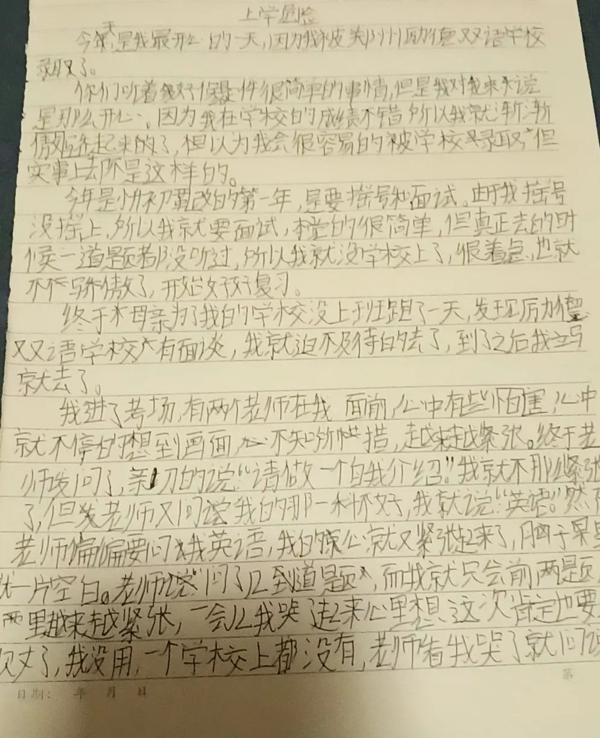 上学
今年,是我最开心的一天,因为我被郑州励德双语学校
录取了。
你们听着好像是件很简单的事情,但是我对我来说
是那么开心、因为我在学校的成绩不错所以我就渐渐
傲娇起来的了,但以为我会很容易的被学校录取"但
实事上却不是这样的。
今年是小升初改的第一年,是要摇号和面试。由于我摇号
没摇上,所以我就要面试,本的很简单,但真正去的时
候一道题都没听过,所以我就没学校上了,很着急,也就
不骄傲了,开始好好复习。
终于母亲为了我的学校没上班跟了一天,发现励德
双语学校有面谈,我就迫不及待的去了,到了之后我立马
就去了。
我进了考场,有两个老师在我 面前,心中有些怕害,心中
就不停的想到画面,心不知所措,越来越紧张。终于老
师发问了,亲切的说:"请做一个自我介绍。"我就不那紧张
了,但老师又问我的那一科好,我就说"英语。"然
老师偏偏要问我英语,我的心就又紧张起来了,脑子
一片空白。老师问了几到道题,而我就只会前两题,
里越来越紧张,一会儿我哭了起来心里想这次肯定也要
了,我没用,一个学校上都没有,老师看我哭了就问
日期: 年 月 日
第